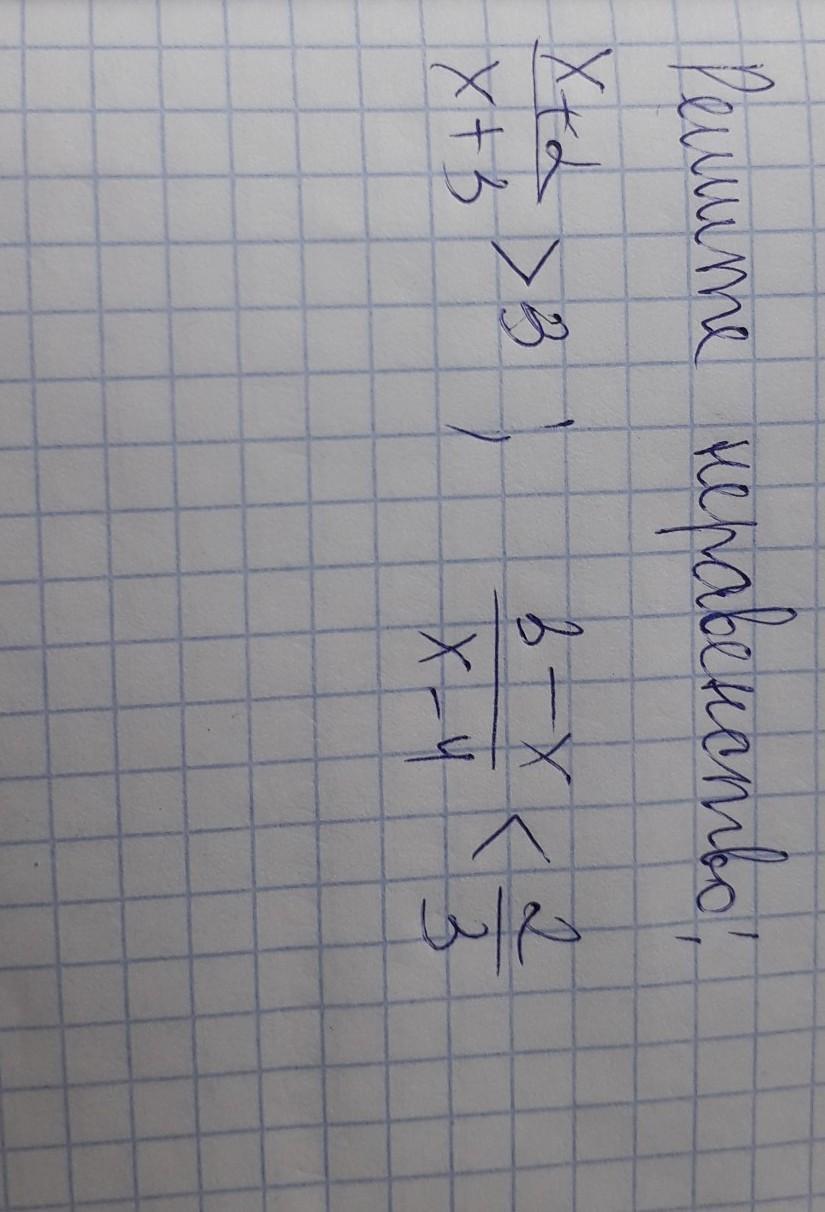 Решите неравенство:
x+2/x+3 > 3 ; 3-x/x-4 < 2/3